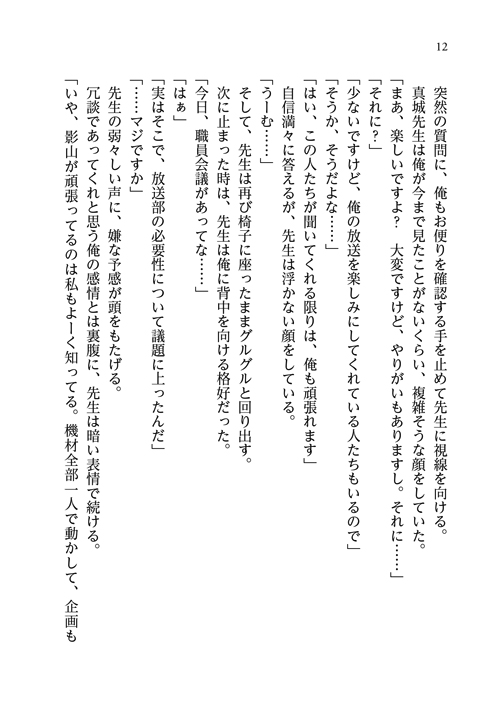 12
　突然の質問に、俺もお便りを確認する手を止めて先生に視線を向ける。
　真城先生は俺が今まで見たことがないくらい、複雑そうな顔をしていた。
「まあ、楽しいですよ？　大変ですけど、やりがいもありますし。それに……」
「それに？」
「少ないですけど、俺の放送を楽しみにしてくれている人たちもいるので」
「そうか、そうだよな……」
「はい、この人たちが聞いてくれる限りは、俺も頑張れます」
　自信満々に答えるが、先生は浮かない顔をしている。
「うーむ……」
　そして、先生は再び椅子に座ったままグルグルと回り出す。
　次に止まった時は、先生は俺に背中を向ける格好だった。
「今日、職員会議があってな……」
「はぁ」
「実はそこで、放送部の必要性について議題に上ったんだ」
「……マジですか」
　先生の弱々しい声に、嫌な予感が頭をもたげる。
　冗談であってくれと思う俺の感情とは裏腹に、先生は暗い表情で続ける。
「いや、影山が頑張ってるのは私もよーく知ってる。機材全部一人で動かして、企画も